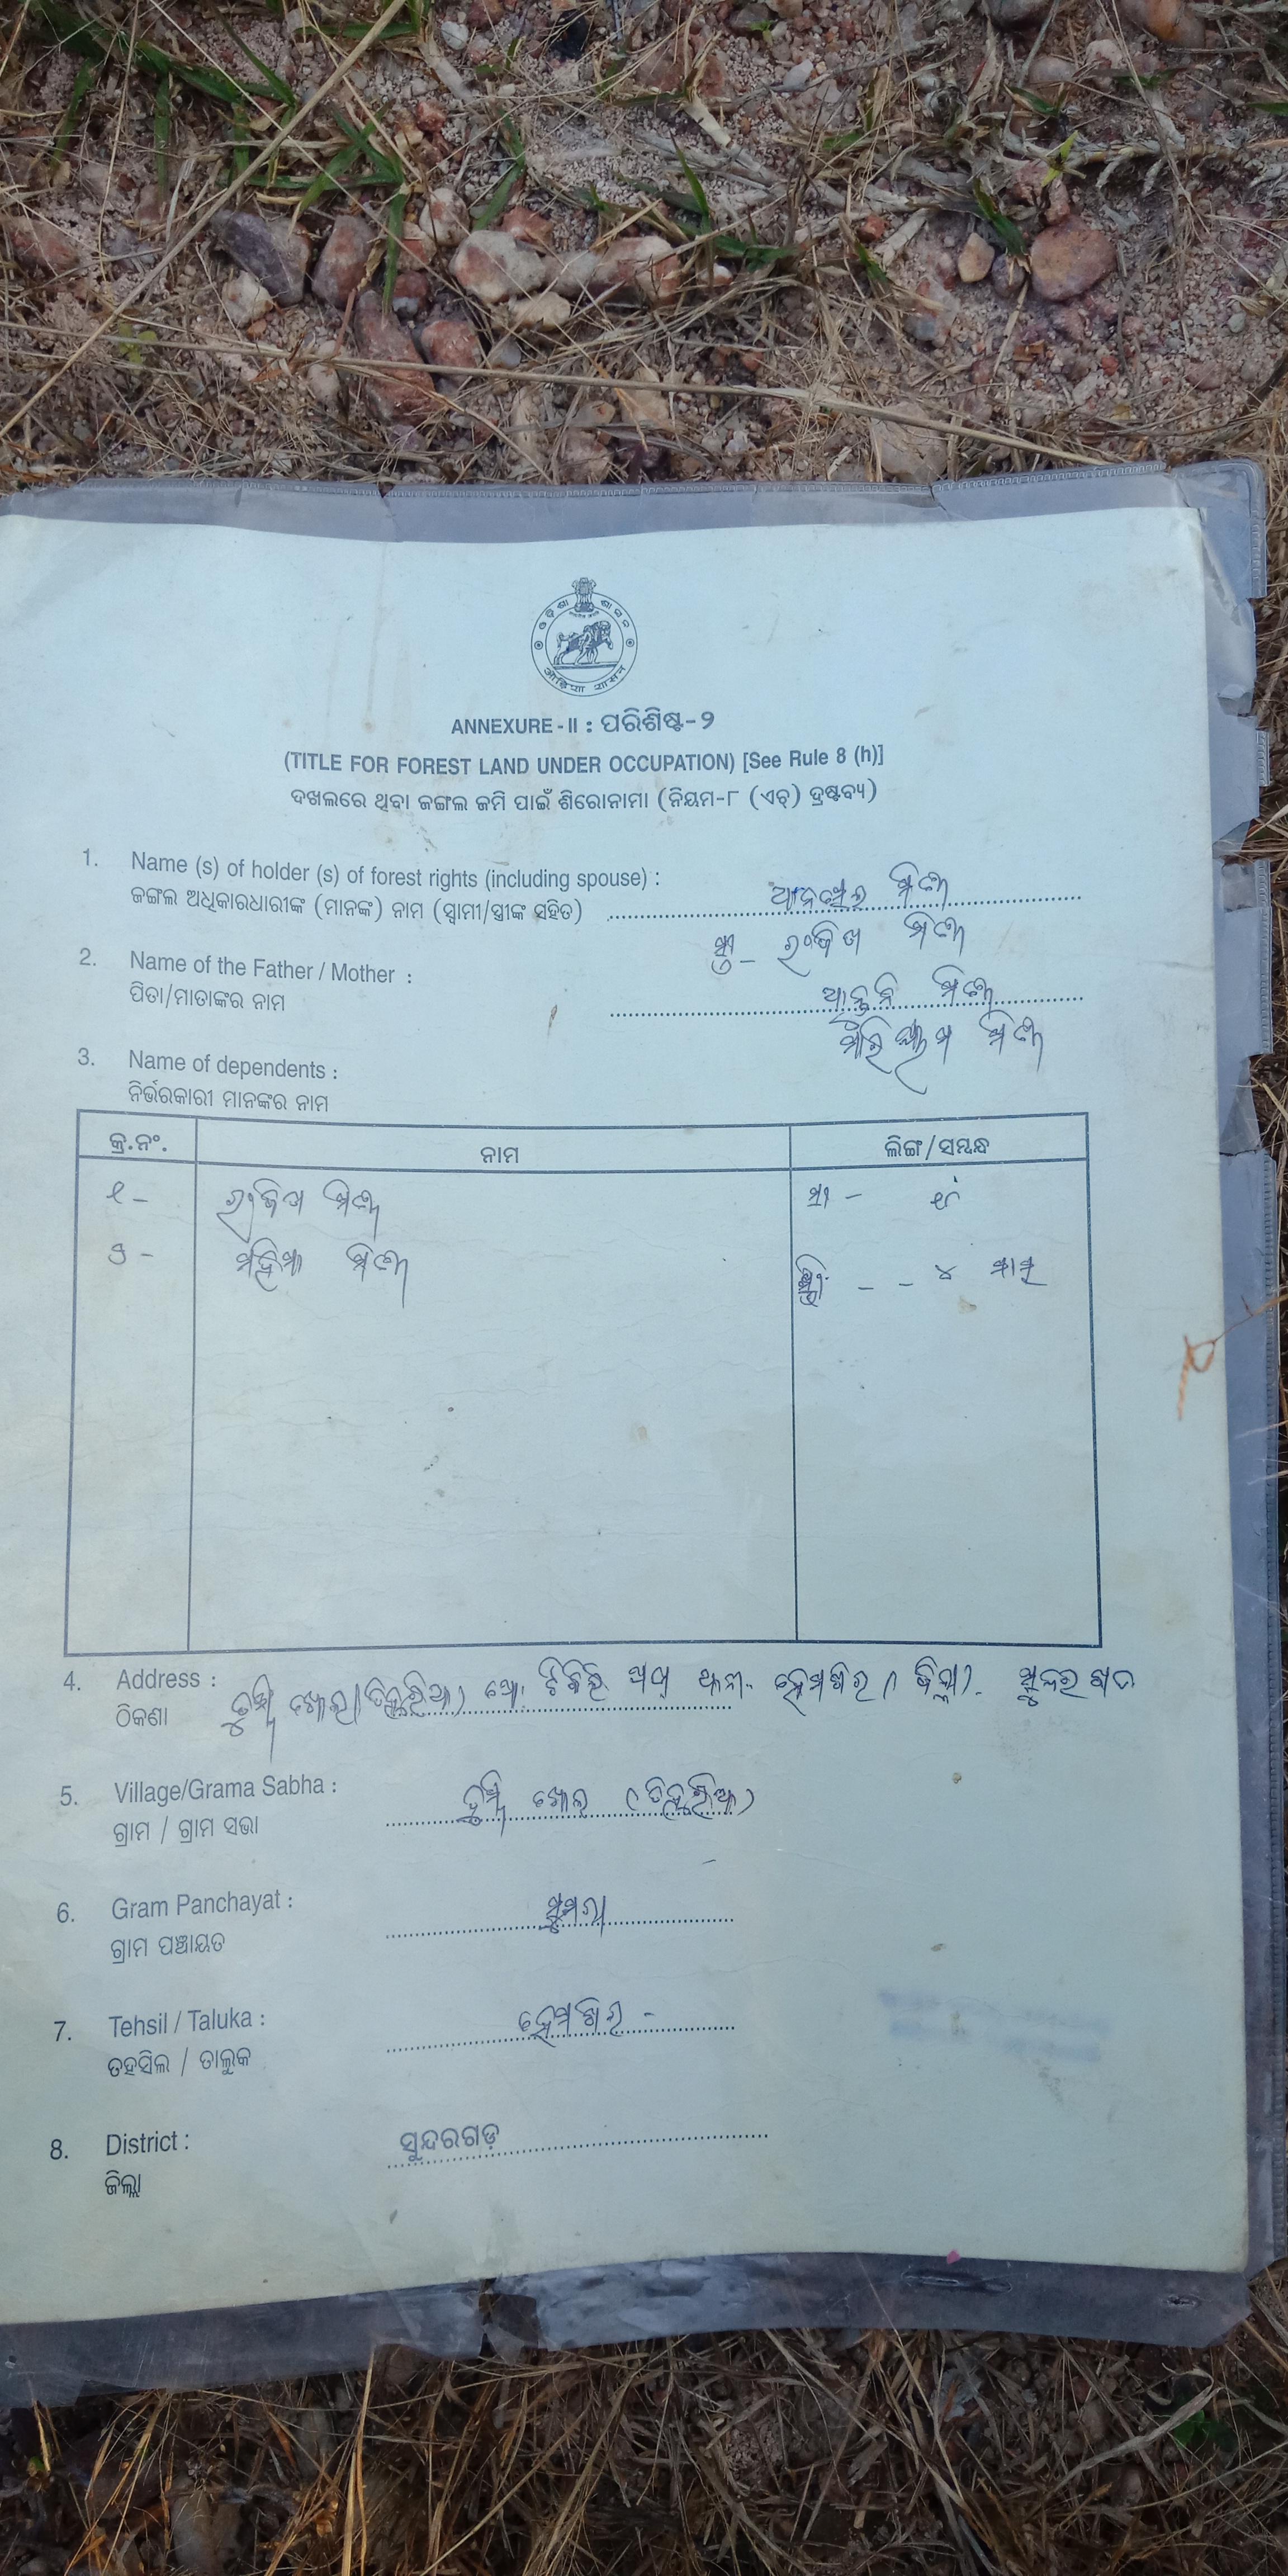 ଓଡ଼ିଶା ଶାସନ
ओड़िशा शासन
ANNEXURE - II : ପରିଶିଷ୍ଟ-୨
(TITLE FOR FOREST LAND UNDER OCCUPATION) [See Rule 8 (h)]
ଦଖଲରେ ଥିବା ଜଙ୍ଗଲ ଜମି ପାଇଁ ଶିରୋନାମା (ନିୟମ-୮ (ଏଚ୍) ଦ୍ରଷ୍ଟବ୍ୟ)
1. Name (s) of holder (s) of forest rights (including spouse) :
ଜଙ୍ଗଲ ଅଧିକାରଧାରୀଙ୍କ (ମାନଙ୍କ) ନାମ (ସ୍ୱାମୀ/ସ୍ତ୍ରୀଙ୍କ ସହିତ) ମିଞ୍ଜ
ସ୍ତ୍ରୀ - ମିଞ୍ଜ
2. Name of the Father / Mother :
ପିତା/ମାତାଙ୍କର ନାମ ମିଞ୍ଜ
ମିଞ୍ଜ
3. Name of dependents :
ନିର୍ଭରକାରୀ ମାନଙ୍କର ନାମ
କ୍ର.ନଂ. ନାମ ଲିଙ୍ଗ/ସମ୍ବନ୍ଧ
୧ - ମିଞ୍ଜ
୨ - ମିଞ୍ଜ - - ୪ ମାସ
4. Address :
ଠିକଣା ହେମଗିର ଜିଲ୍ଲା
5. Village/Grama Sabha :
ଗ୍ରାମ / ଗ୍ରାମ ସଭା
6. Gram Panchayat : ସୁମରା
ଗ୍ରାମ ପଞ୍ଚାୟତ
7. Tehsil / Taluka : ହେମଗିର -
ତହସିଲ / ତାଲୁକ
8. District : ସୁନ୍ଦରଗଡ଼
ଜିଲ୍ଲା